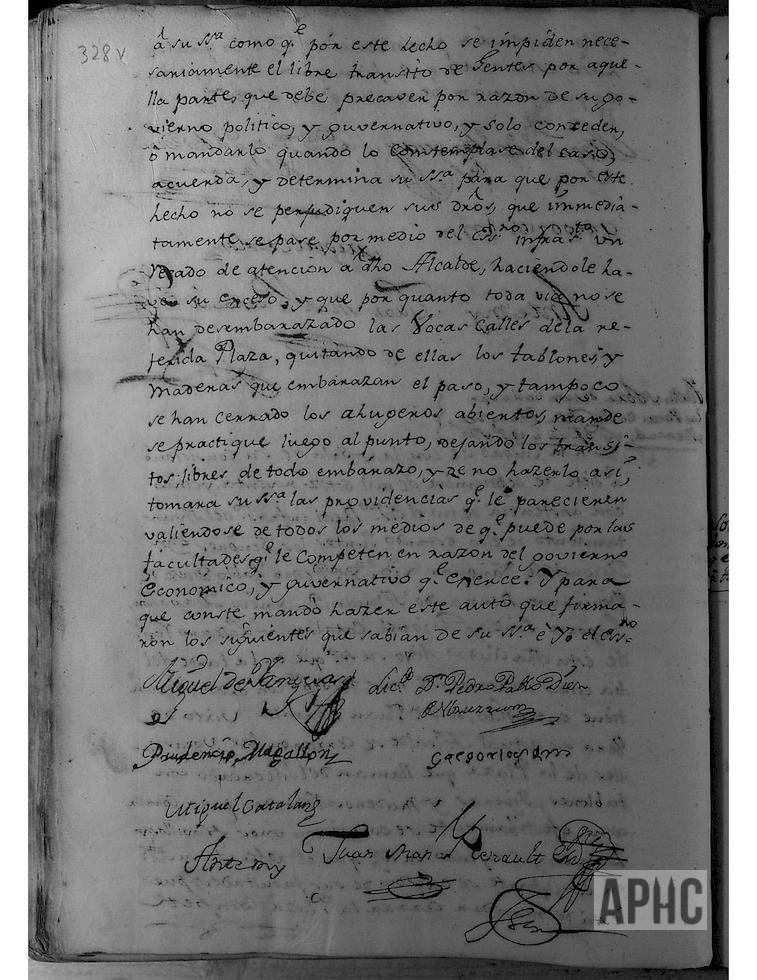 328v
a su ssª como q.e por este hecho se impiden nece-
sariamente el libre transito de Gentes por aque-
lla parte, que debe precaver por razon de su go-
vierno politico, y guvernativo, y solo conceder,
o mandarlo quando lo Comtemplase del caso,
acuerda, y determina su ssª para que por este
hecho no se perjudiquen sus dros, que immedia-
tamente se pase por medio del infra un
recado de atencion a dho Alcalde, haciendole ha-
ver su exceso, y que por quanto toda via no se
han desembarazado las Vocas Calles de la re-
ferida Plaza, quitando de ellas los tablones, y
Maderas que embarazan el paso, y tampoco
se han cerrado los ahugeros abiertos, mande
se practique luego al punto, dejando los transi-
tos, libres de todo embarazo, y de no hazerlo asi,
tomara su ssª las providencias q.e le parecieren
valiendose de todos los medios de q.e puede por las
facultades q.e le Competen en razon del govierno
Economico, y guvernativo q.e exerce: Y para
que conste mandò hazer este auto que firma-
ron los siguientes que sabian de su ssª è Yo el ess.no
Miguel de Lic.do D.n Pedro Pablo Diez
Prudencio Magallon Gregorio
Miguel Catalan
Ante my Juan
APHC